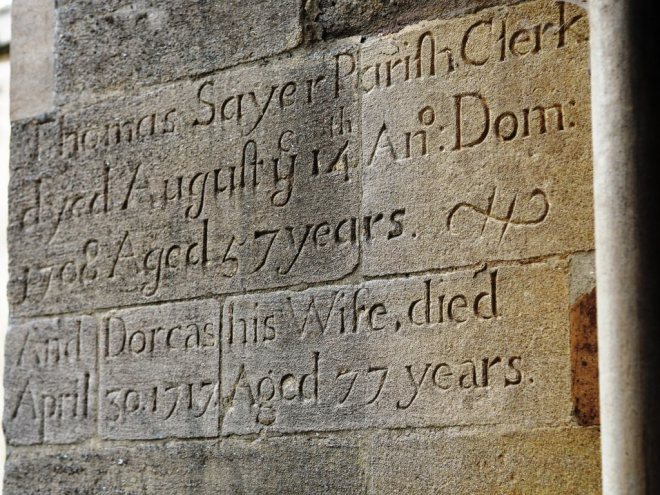 Thomas Sayer Pariſh Clerk
dyed Auguſt yᵉ 14ᵗʰ Anº: Dom:
1708 Aged 57 years.
And Dorcas his Wife, died
April 30.1717 Aged 77 years.